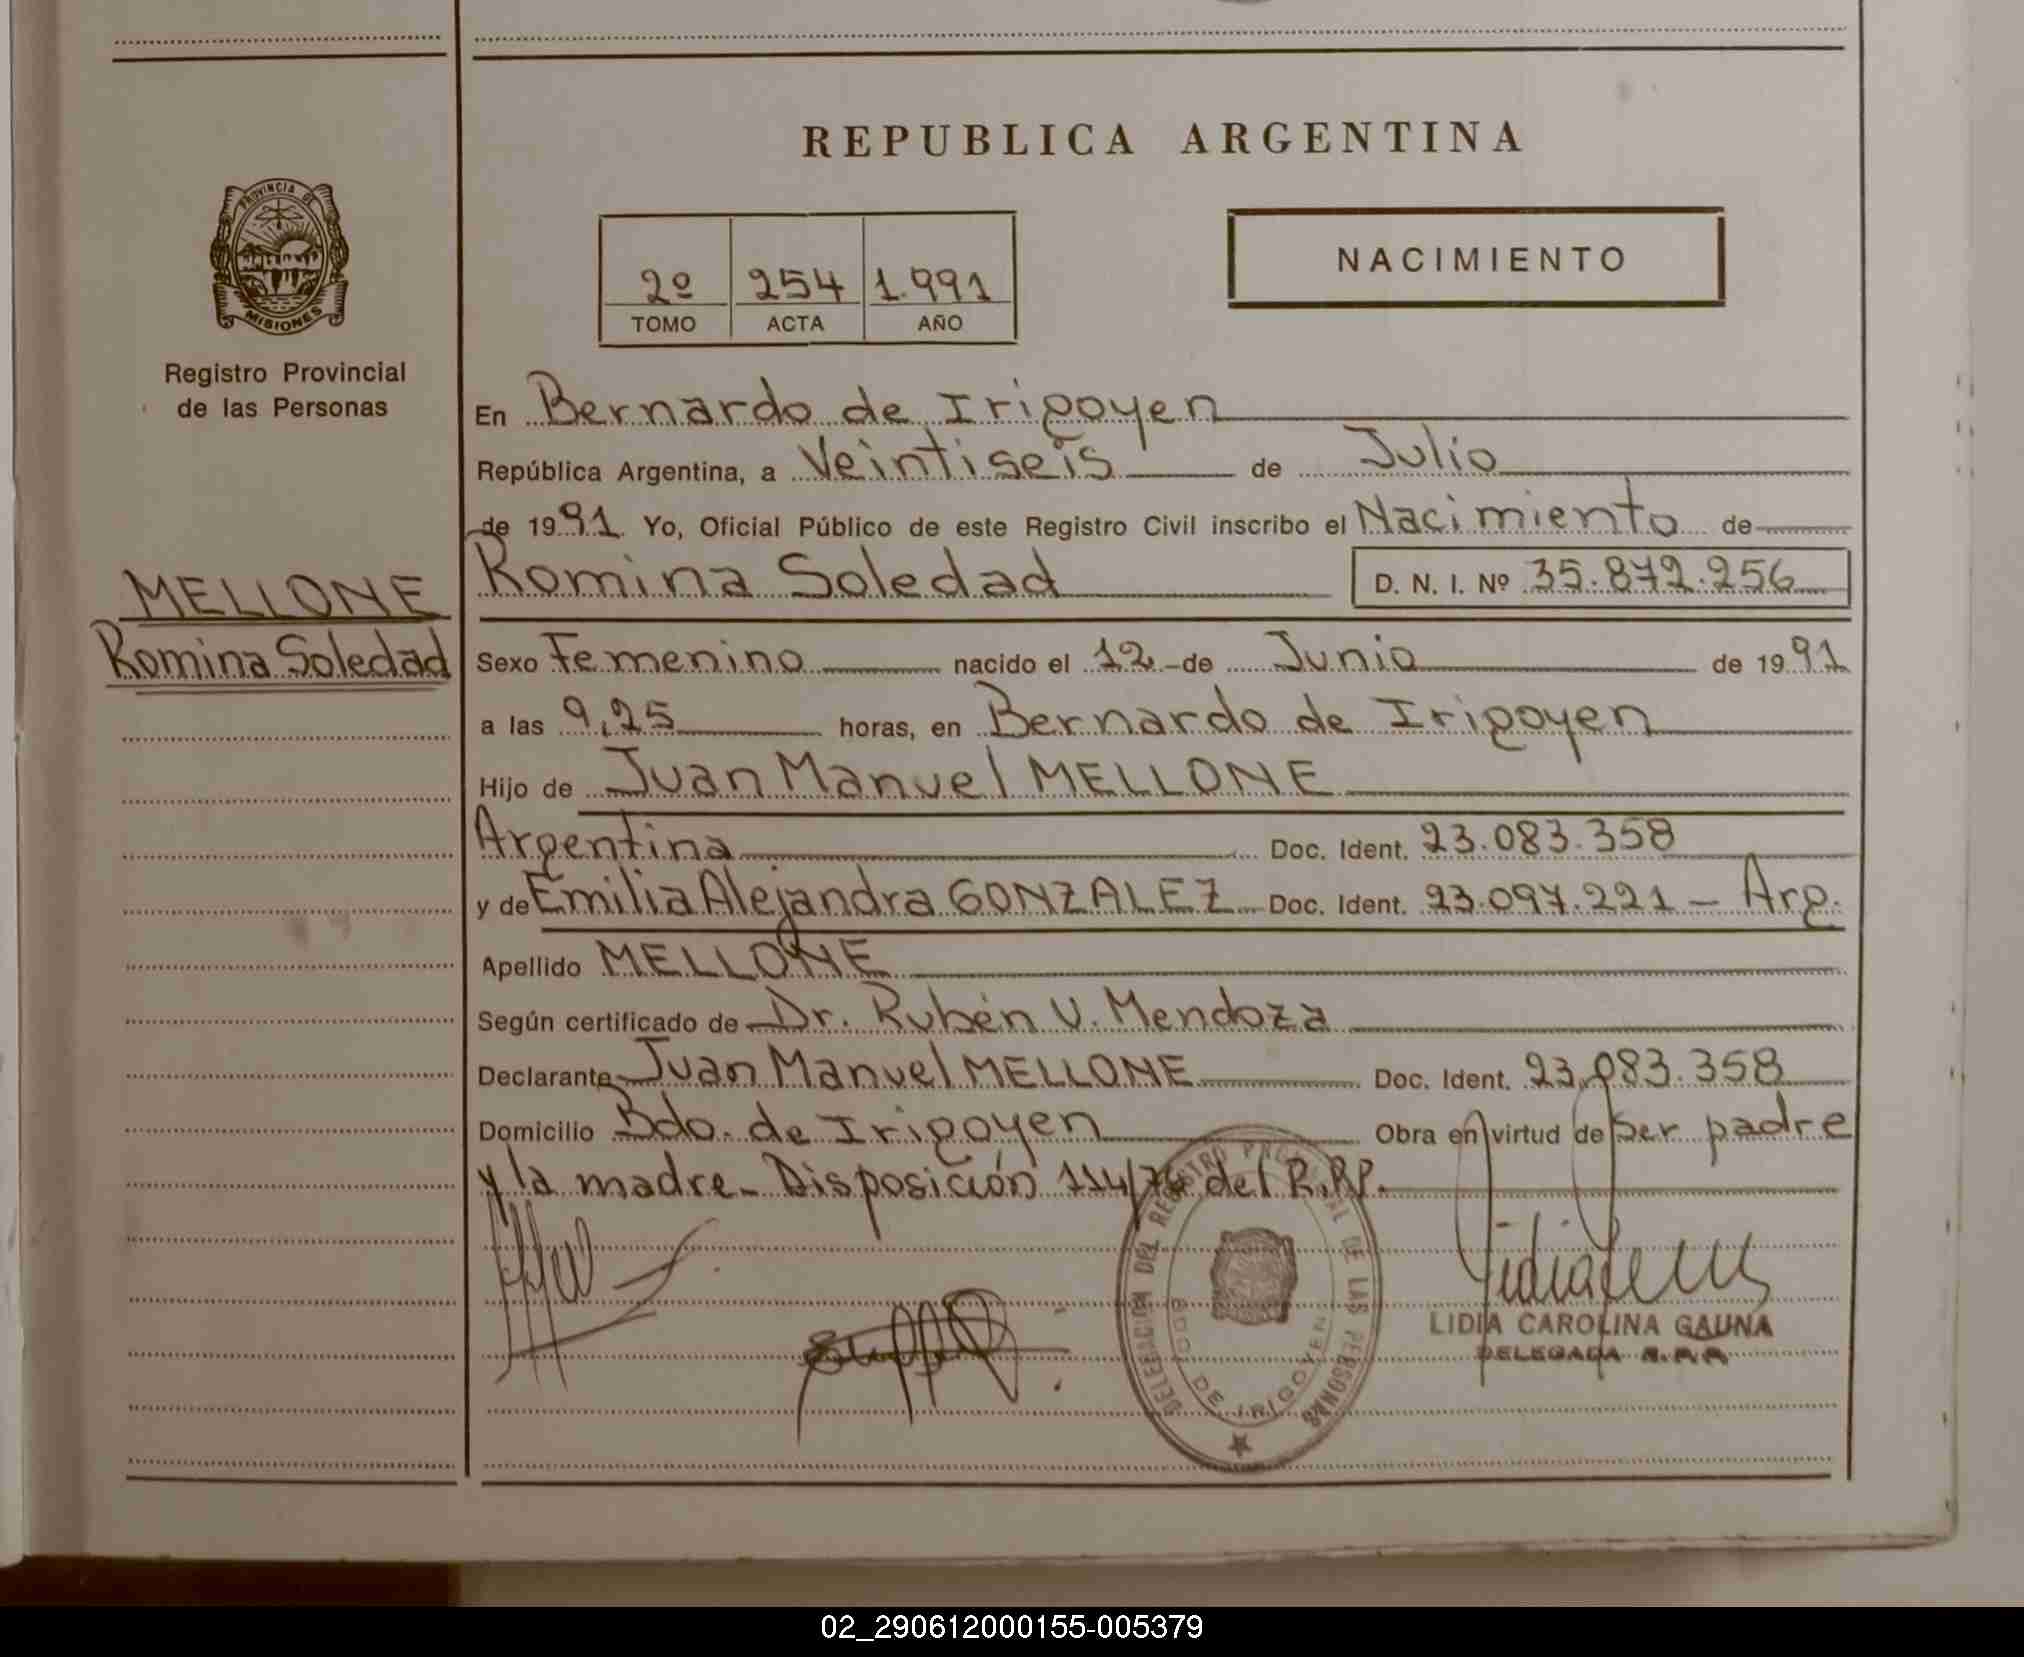 REPUBLICA ARGENTINA
PROVINCIA DE
MISIONES
Registro Provincial
de las Personas
2º 254 1.991
TOMO ACTA AÑO
NACIMIENTO
En Bernardo de Irigoyen
República Argentina, a Veintiseis de Julio
de 1991 Yo, Oficial Público de este Registro Civil inscribo el Nacimiento de
MELLONE
Romina Soledad
Romina Soledad D. N. I. Nº 35.872.256
Sexo Femenino nacido el 12 de Junio de 1991
a las 9,25 horas, en Bernardo de Irigoyen
Hijo de Juan Manuel MELLONE
Argentina Doc. Ident. 23.083.358
y de Emilia Alejandra GONZALEZ Doc. Ident. 23.097.221 - Arg.
Apellido MELLONE
Según certificado de Dr. Rubén V. Mendoza
Declarante Juan Manuel MELLONE Doc. Ident. 23.083.358
Domicilio Bdo. de Irigoyen Obra en virtud de ser padre
y la madre - Disposición 114/76 del R.R.P.
DELEGACION DEL REGISTRO PROVINCIAL DE LAS PERSONAS
BDO. DE IRIGOYEN
LIDIA CAROLINA GAUNA
DELEGADA
02_290612000155-005379